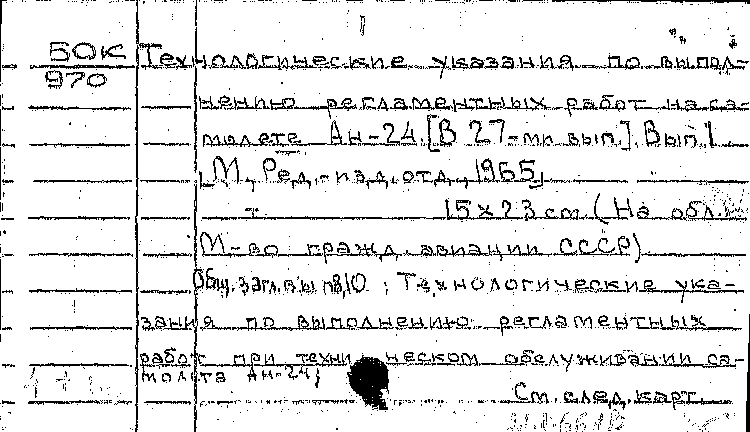 50К
970
Технологические указания по выпол-
нению регламентных работ на са-
молете Ан-24. [В 27-ми вып.]. Вып. 1
М., Ред.-изд. отд., 1965
15х23 см. (На обл.:
М-во гражд. авиации СССР)
Общ. загл. вып. 8, 10: Технологические ука-
зания по выполнению регламентных
работ при техническом обслуживании са-
молета Ан-24;
См. след. карт.